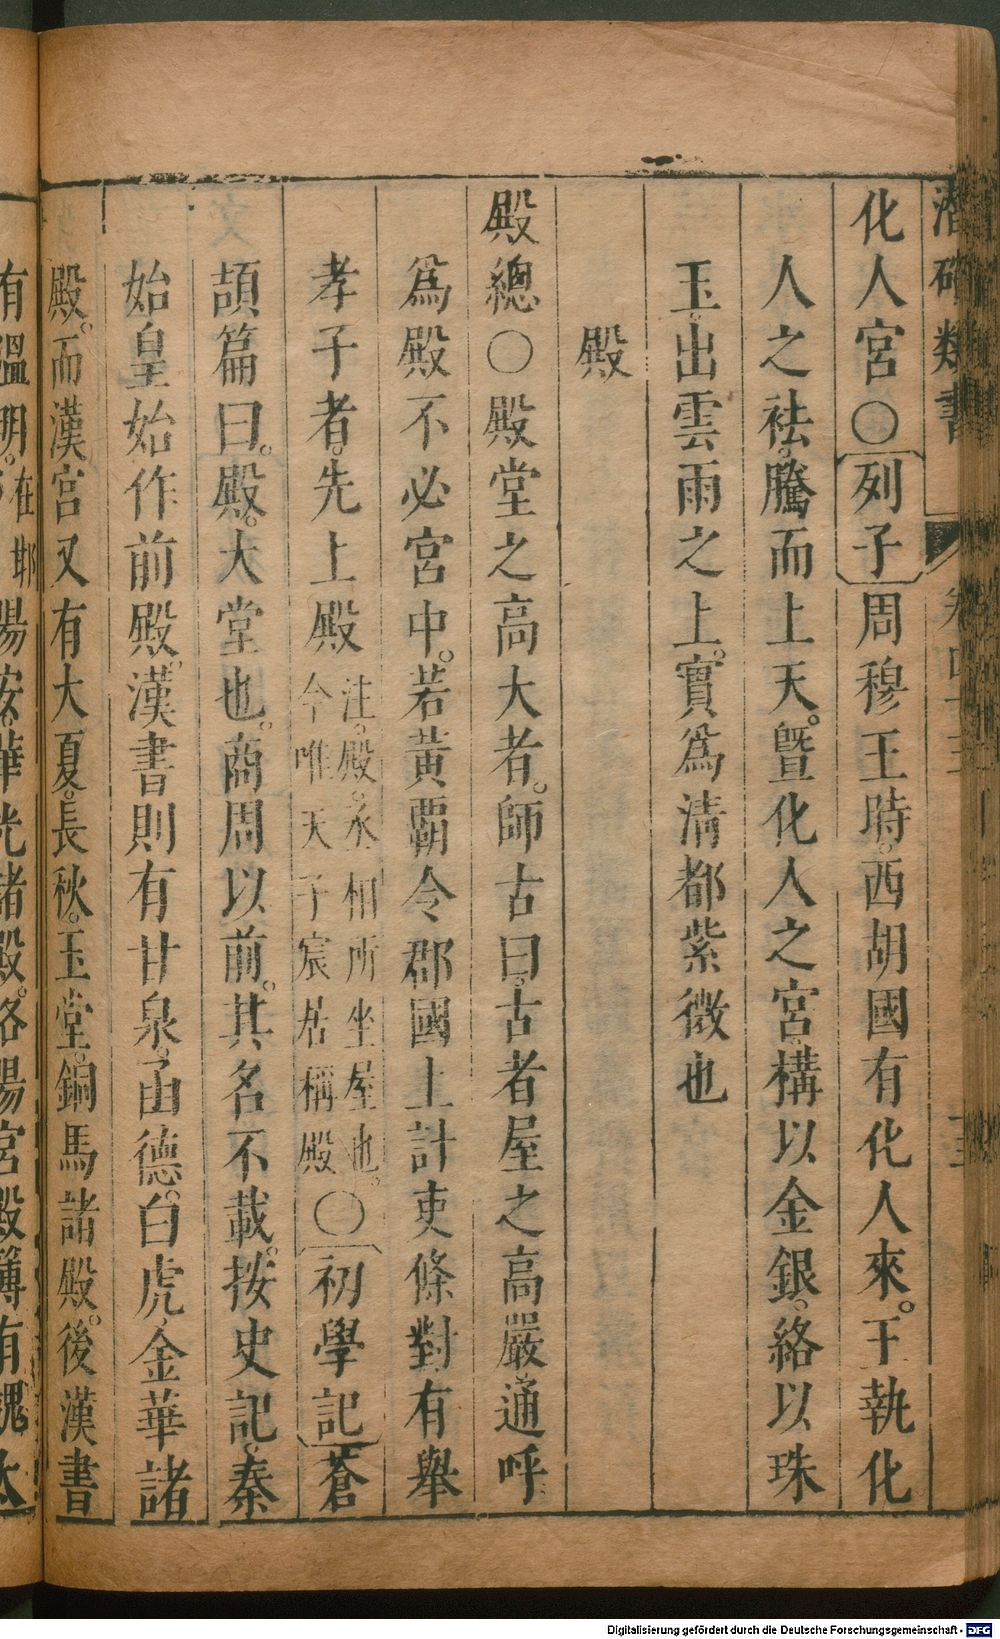 潛確類書 卷四十三 十三
化人宮○〔列子〕周穆王時。西胡國有化人來。王執化
人之袪。騰而上天。曁化人之宮。構以金銀。絡以珠
玉。出雲雨之上。實爲清都紫微也
殿
殿總○殿堂之高大者。師古曰。古者屋之高嚴。通呼
爲殿不必宮中。若黃覇令郡國上計吏條對。有舉
孝子者。先上殿 注。殿。丞相所坐屋也。今唯天子宸居稱殿 ○〔初學記〕蒼
頡篇曰。殿。大堂也。商周以前。其名不載。按史記。秦
始皇始作前殿。漢書則有甘泉。函德。白虎。金華諸
殿。而漢宮又有大夏。長秋。玉堂。銅馬諸殿。後漢書
有溫明。在耶
陽按。華光諸殿。洛陽宮殿簿有魏太
Digitalisierung gefördert durch die Deutsche Forschungsgemeinschaft - DFG